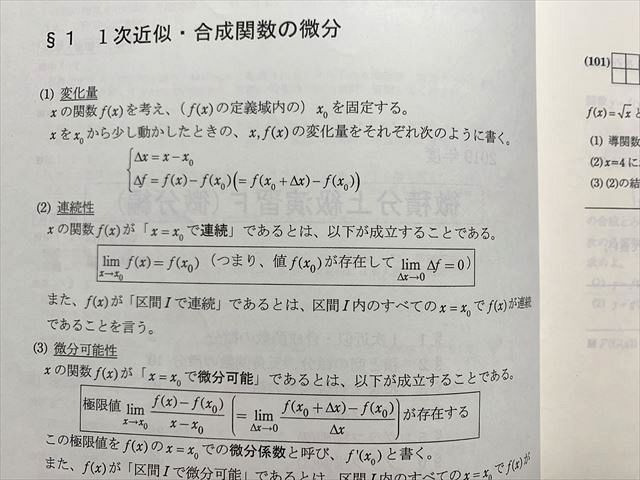 §1 1次近似・合成関数の微分
(1) 変化量
xの関数f(x)を考え、(f(x)の定義域内の) x₀を固定する。
xをx₀から少し動かしたときの、x, f(x)の変化量をそれぞれ次のように書く。
Δx = x − x₀
Δf = f(x) − f(x₀) (= f(x₀ + Δx) − f(x₀))
(2) 連続性
xの関数f(x)が「x = x₀で連続」であるとは、以下が成立することである。
lim_{x→x₀} f(x) = f(x₀) (つまり、値f(x₀)が存在して lim_{Δx→0} Δf = 0)
また、f(x)が「区間Iで連続」であるとは、区間I内のすべてのx = x₀でf(x)が連続
であることを言う。
(3) 微分可能性
xの関数f(x)が「x = x₀で微分可能」であるとは、以下が成立することである。
極限値 lim_{x→x₀} (f(x) − f(x₀))/(x − x₀) (= lim_{Δx→0} (f(x₀ + Δx) − f(x₀))/Δx) が存在する
この極限値をf(x)のx = x₀での微分係数と呼び、f'(x₀)と書く。
また、f(x)が「区間Iで微分可能」であるとは、区間I内のすべてのx = x₀でf(x)が
(101)
f(x) = √x
(1) 導関数
(2) x = 4に
(3) (2)の結